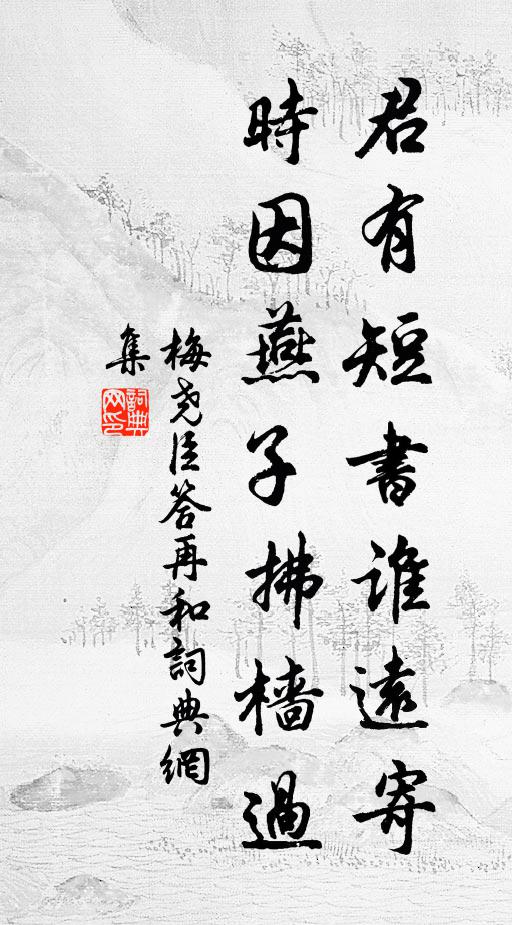 君有短書誰遠寄
時因燕子拂檣過
梅堯臣答再和詞典網
集
詞典
网印